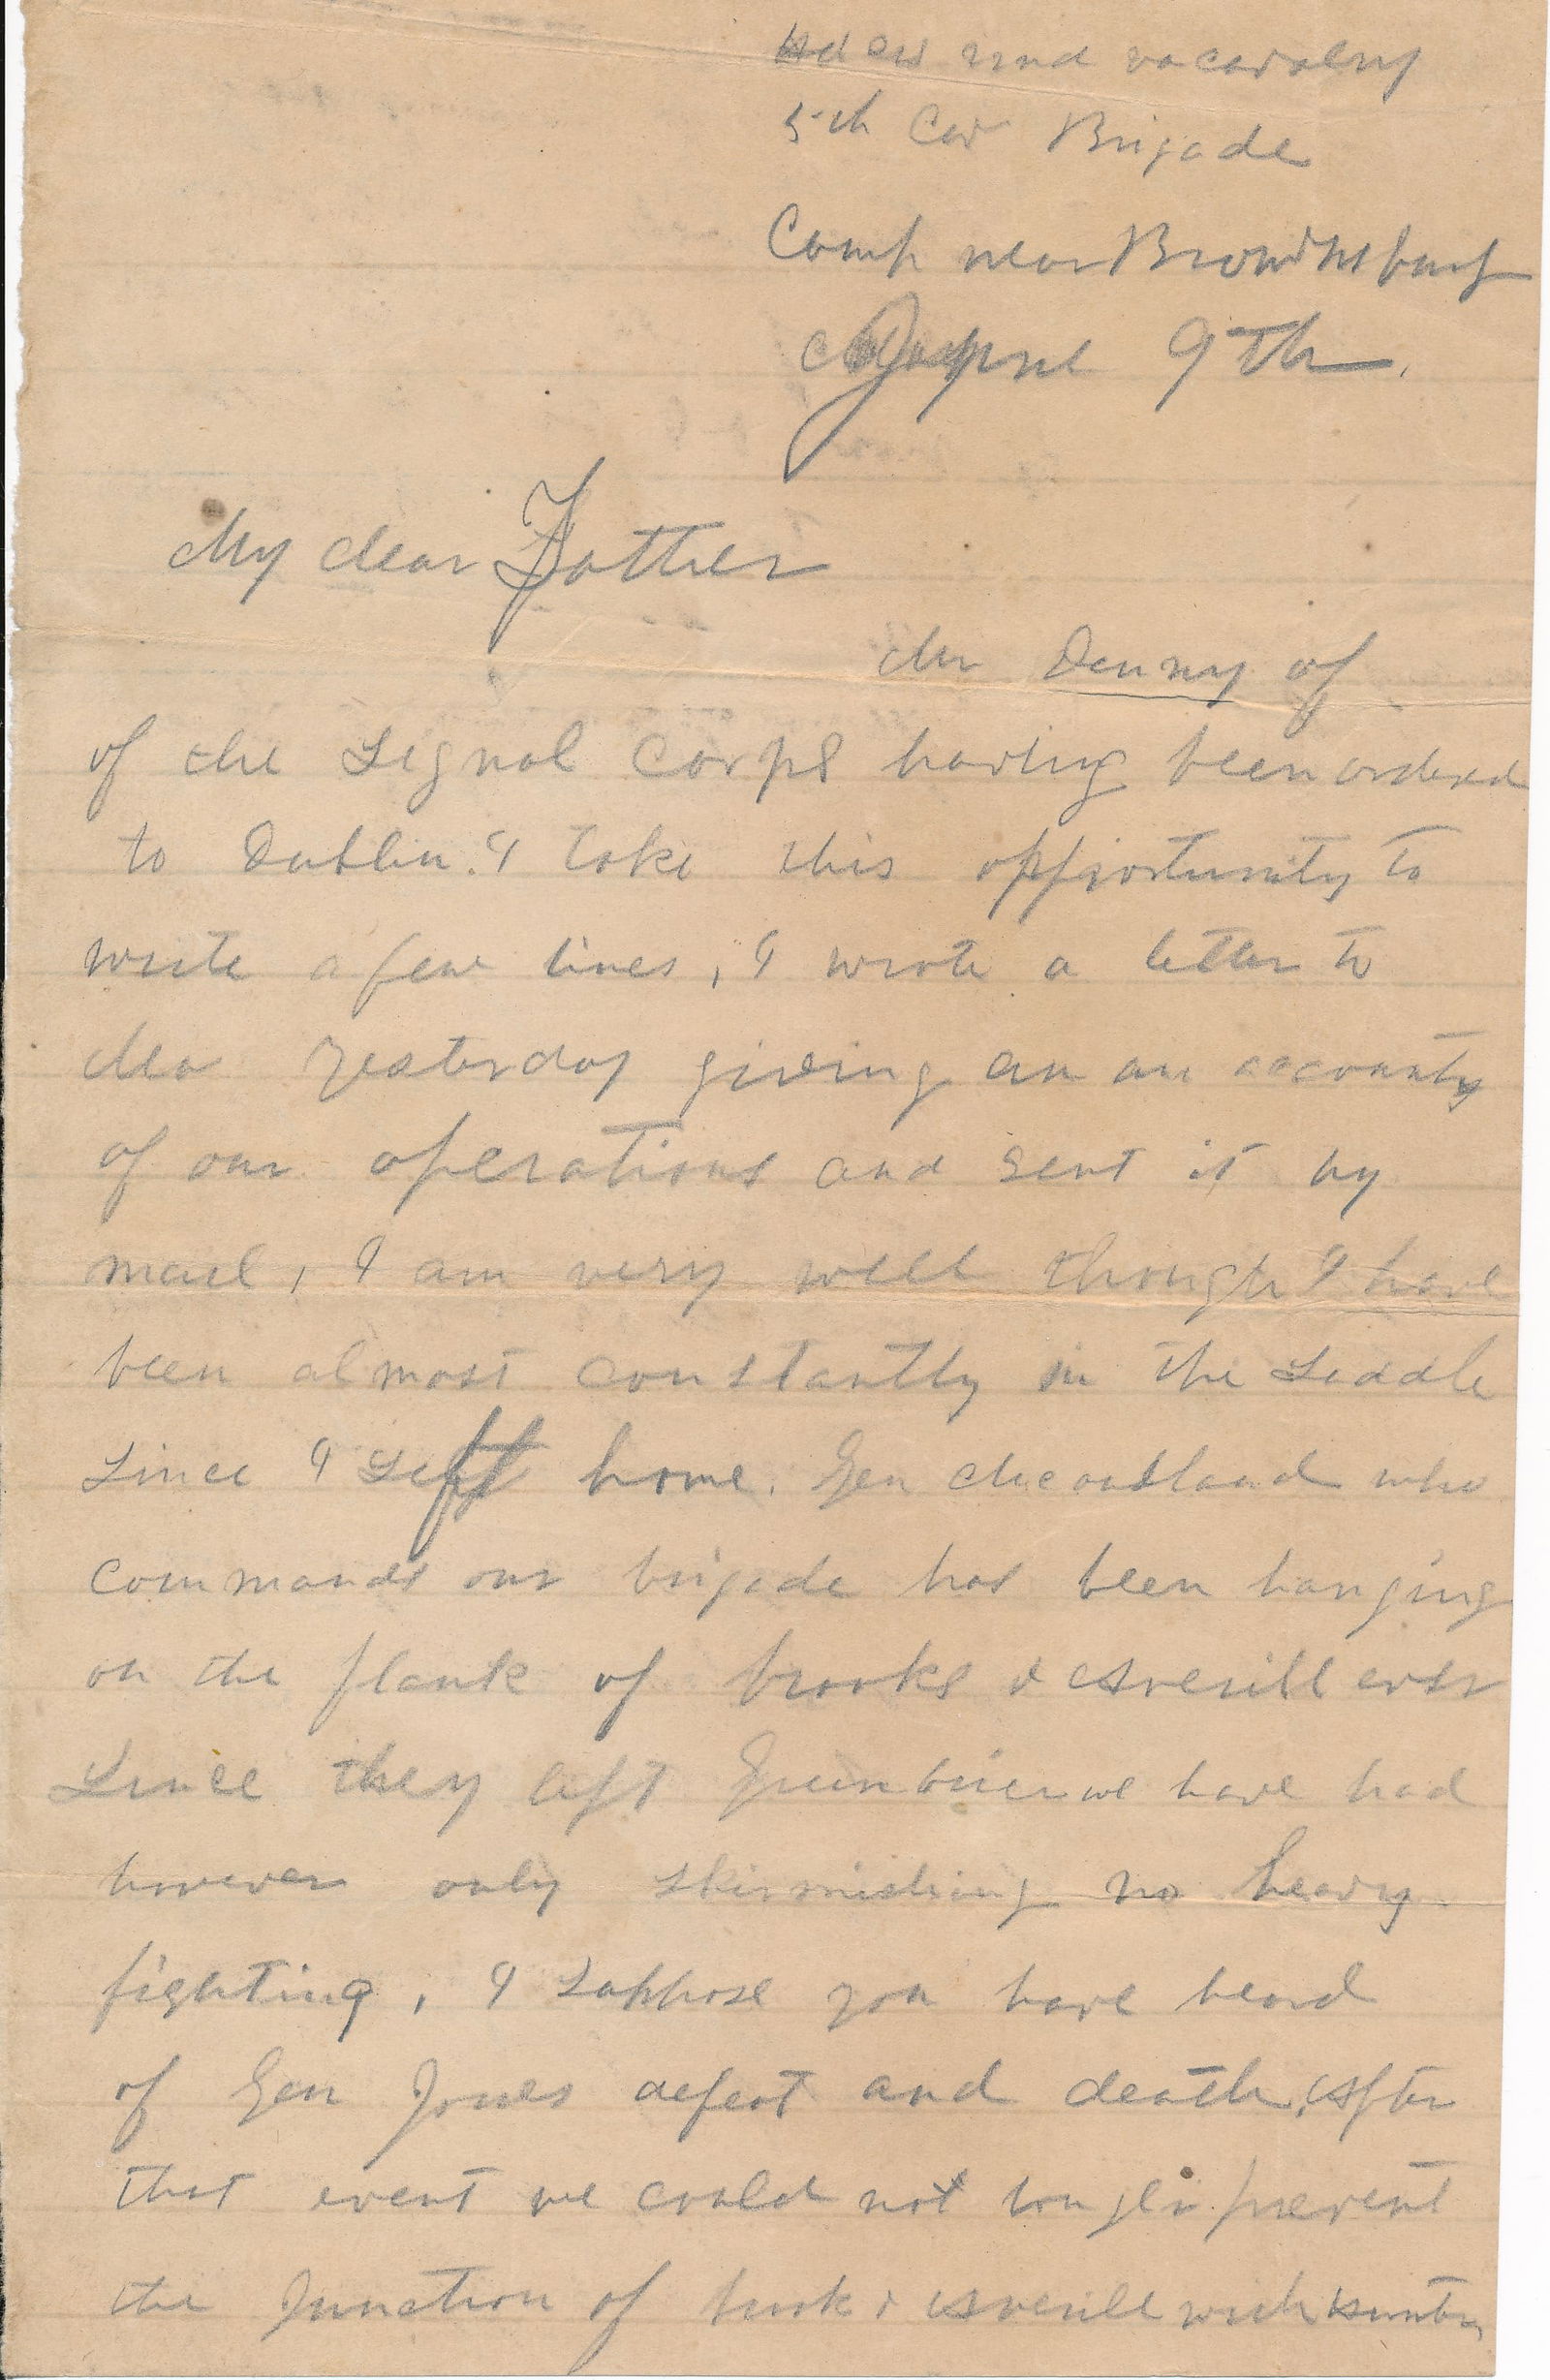 Hd Qrs 22nd Va Cavalry
5th Cav Brigade
Camp near Brownsburg
June 9th.
My dear Father
Mr Denny of
of the Signal Corps having been ordered
to Dublin. I take this opportunity to
write a few lines, I wrote a letter to
Ma yesterday giving an an account
of our operations and sent it by
mail, I am very well though I have
been almost constantly in the saddle
since I left home. Gen McCausland who
commands our brigade has been hanging
on the flank of Crooks & Averill ever
since they left Greenbrier we have had
however only skirmishing no heavy
fighting, I suppose you have heard
of Gen Jones defeat and death. After
that event we could not longer prevent
the junction of Crook & Averill with Hunter